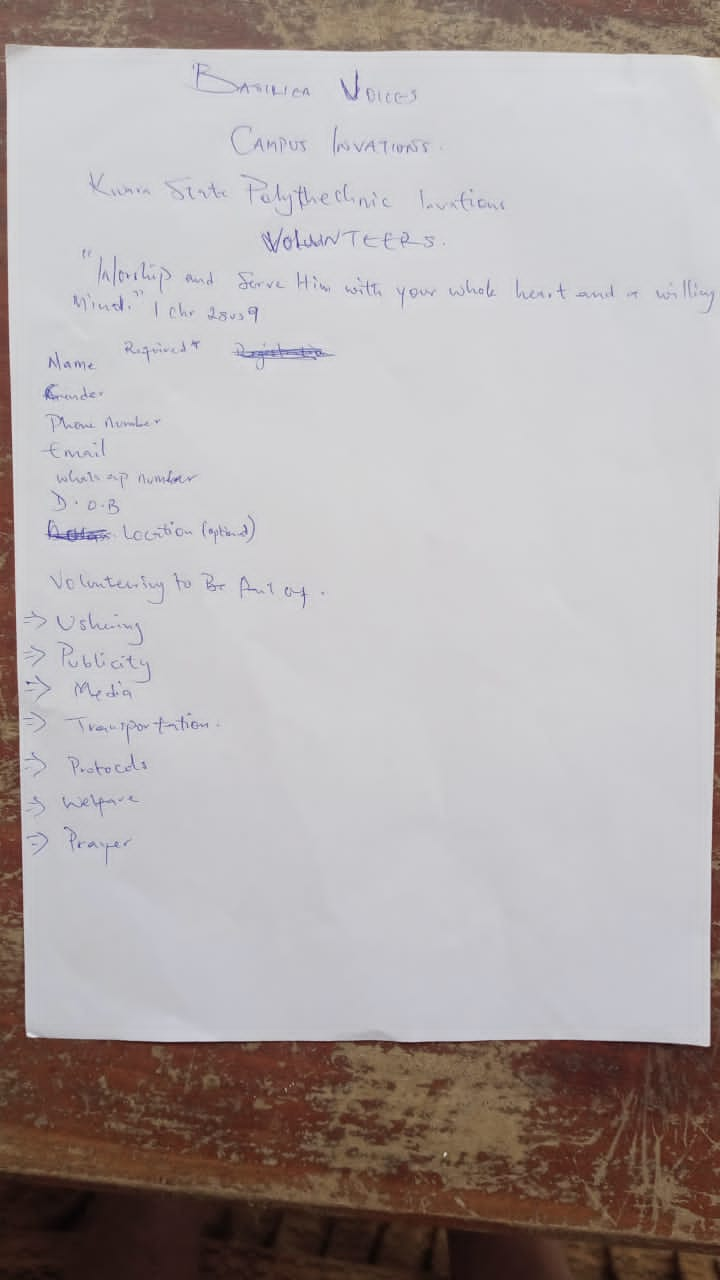 BASILICA VOICES
CAMPUS INVATIONS.
Kwara State Polythechnic Invations
VOLUNTEERS.
"Worship and Serve Him with your whole heart and a willing
Mind." 1 Chr 28vs9
Name Required* Registration
Gender
Phone Number
Email
whatsap number
D.O.B
Location (optional)
Volunteering to Be Part of.
⇒ Ushering
⇒ Publicity
⇒ Media
⇒ Transportation.
⇒ Protocols
⇒ Welfare
⇒ Prayer